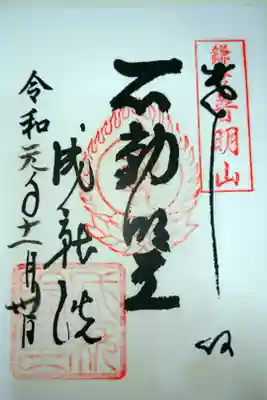 奉拝
鎌倉普明山
不動明王
成就院
令和元年十一月卅日